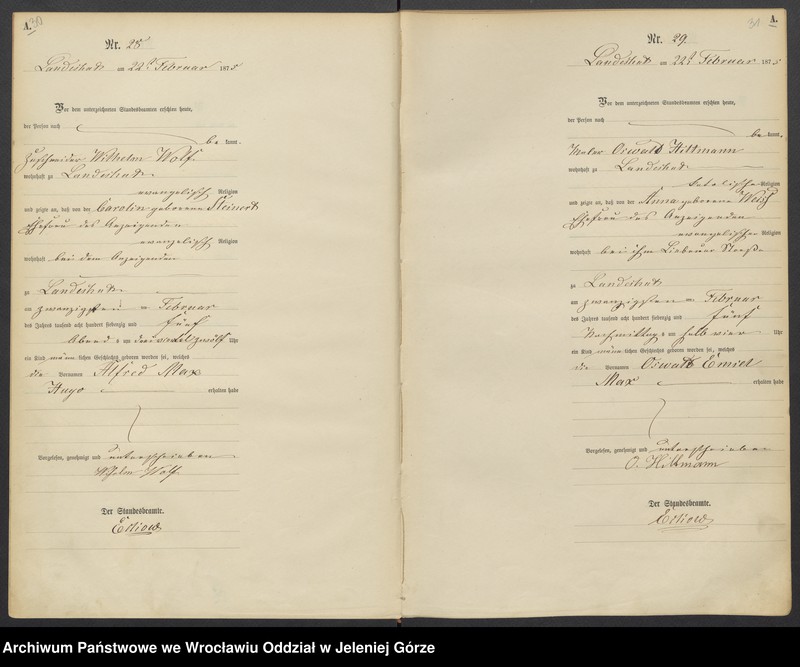 A.
30
Nr. 28
Landeshut am 22ten Februar 1875
Vor dem unterzeichneten Standesbeamten erschien heute,
der Person nach
be kannt,
Zuschneider Wilhelm Wolf
wohnhaft zu Landeshut
evangelisch Religion
und zeigte an, daß von der Carolin geborene Kleinert
Ehefrau des Anzeigenden
evangelisch Religion
wohnhaft bei dem Anzeigenden
zu Landeshut
am zwanzigsten Februar
des Jahres tausend acht hundert siebenzig und fünf
Abend um drei viertel zwölf Uhr
ein Kind männ lichen Geschlechts geboren worden sei, welches
die Vornamen Alfred Max
Hugo erhalten habe
Vorgelesen, genehmigt und unterschrieben
Wilhelm Wolf
Der Standesbeamte.
31
A.
Nr. 29.
Landeshut am 22ten Februar 1875
Vor dem unterzeichneten Standesbeamten erschien heute,
der Person nach
be kannt,
Maler Oswald Hittmann
wohnhaft zu Landeshut
Religion
und zeigte an, daß von der Anna geborene Weiß
Ehefrau des Anzeigenden
evangelischer Religion
wohnhaft bei ihm Liebauer Straße
zu Landeshut
am zwanzigsten Februar
des Jahres tausend acht hundert siebenzig und fünf
Nachmittags um halb vier Uhr
ein Kind männ lichen Geschlechts geboren worden sei, welches
die Vornamen Oswald Emiel
Max erhalten habe
Vorgelesen, genehmigt und unterschrieben
O. Hittmann
Der Standesbeamte.
Archiwum Państwowe we Wrocławiu Oddział w Jeleniej Górze